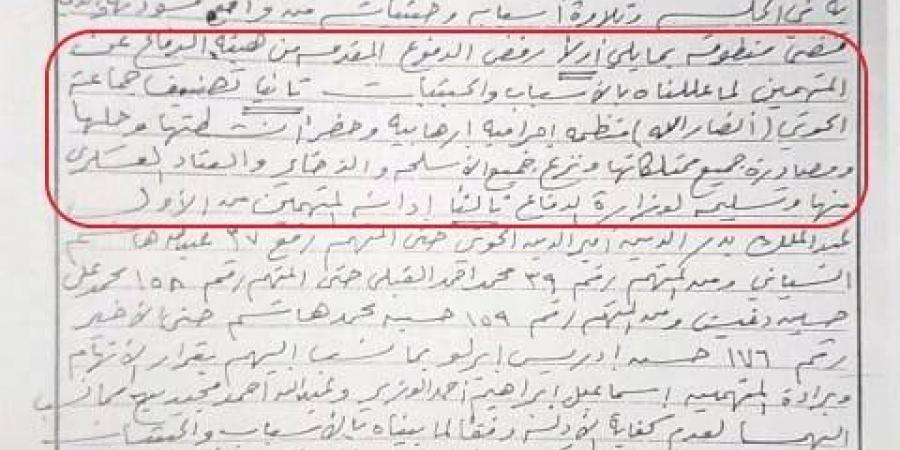 في الحكم وتلاوة أسبابه وحيثياته من واقع
فقضى منطوقه بما يلي أولاً رفض الدفوع المقدمه من هيئه الدفاع عن
المتهمين لما عللناه بالأسباب والحيثيات ثانياً تصنيف جماعة
الحوثي (أنصار الله) منظمه إجراميه إرهابيه وحضر أنشطتها وحلها
ومصادرة جميع ممتلكاتها ونزع جميع الأسلحه والذخاير والعتاد العسكري
منها وتسليمه لوزارة الدفاع ثالثاً إدانة المتهمين من الأول
عبدالملك بدر الدين أمير الدين الحوثي حتى المتهم رقم ٣٧ عبد
الشياني ومن المتهم رقم ٣٩ محمد احمد القبلي حتى المتهم رقم ١٥٨ محمد علي
حسين ومن المتهم رقم ١٥٩ حسين محمد هاشم حتى الأخير
رقم ١٧٦ حسن إدريس إيرلو بما نسب إليهم بقرار الاتهام
وبراءة المتهمين إسماعيل إبراهيم أحمد الوزير وعبدالله أحمد مما نسب
إليهما لعدم كفاية الأدلة وفقاً لما بيناه بالأسباب والحيثيات